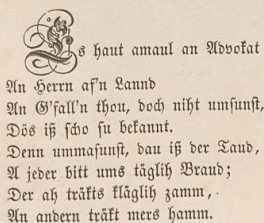 Es haut amaul an Advokat
An Herrn af'n Lannd
An G'fall'n thou, doch niht umsunst,
Dös iß scho su bekannt.
Denn ummasunst, dau iß der Taud,
A jeder bitt ums täglih Braud;
Der ah träkts kläglih zamm,
An andern träkt mers hamm.